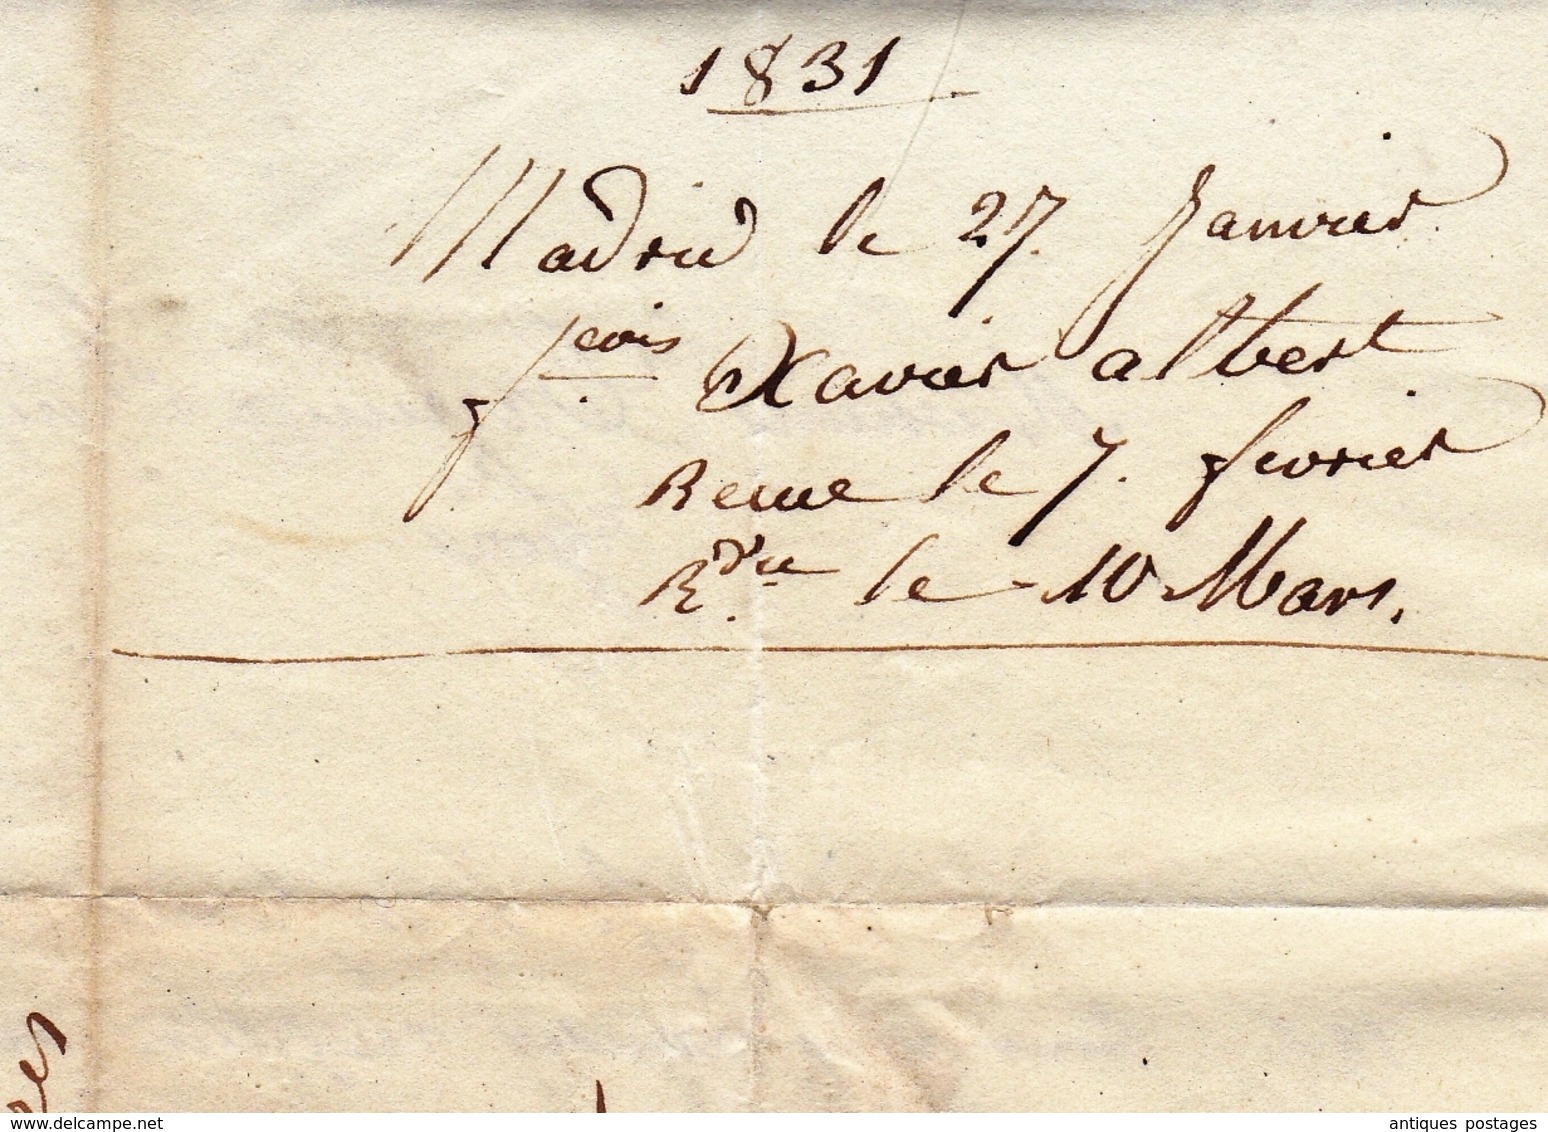 1831
Madrid le 27. Janvier
fcois Xavier albert
Recue le 7. fevrier
Rdue le 10 Mars.
delcampe.net
antiques postages